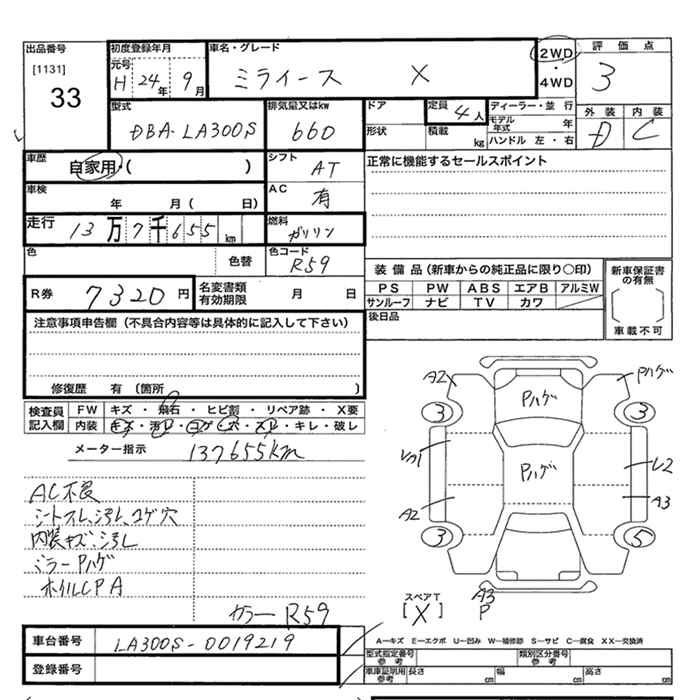 出品番号 初度登録年月 車名・グレード 2WD 評価点
[1131] 元号 ・
33 H 24年 9月 ミライース X 4WD 3
型式 排気量又はkw ドア 定員 4人 ディーラー・並 行 外装 内装
DBA-LA300S 660 形状 積載 kg モデル年式 年 D C
ハンドル 左・右
車歴 自家用・( ) シフト AT 正常に機能するセールスポイント
車検 年 月( 日) AC 有
走行 13万7千655km 燃料 ガソリン
色 色替 色コード R59
装備品(新車からの純正品に限り○印) 新車保証書の有無
R券 7320円 名変書類有効期限 月 日 PS PW ABS エアB アルミW
サンルーフ ナビ TV カワ
注意事項申告欄(不具合内容等は具体的に記入して下さい) 後日品 車載不可
修復歴 有(箇所 )
検査員記入欄 FW キズ・飛石・ヒビ割・リペア跡・X要
内装 キズ・汚レ・コゲ・穴・スレ・キレ・破レ
メーター指示 137655km
AC不良
シートスレ、汚レ、コゲ穴
内装キズ、汚レ
ミラーPハゲ
ホイルCPA
カラーR59
A2 Pハゲ Pハゲ
3 3
Pハゲ
L2
A2 A3
3 5
A3
P
スペアT
[X]
車台番号 LA300S-0019219
登録番号
A―キズ E―エクボ U―凹み W―補修跡 S―サビ C―腐食 XX―交換済
型式指定番号 参考 類別区分番号 参考
車庫証明用 参考 長さ cm 幅 cm 高さ cm